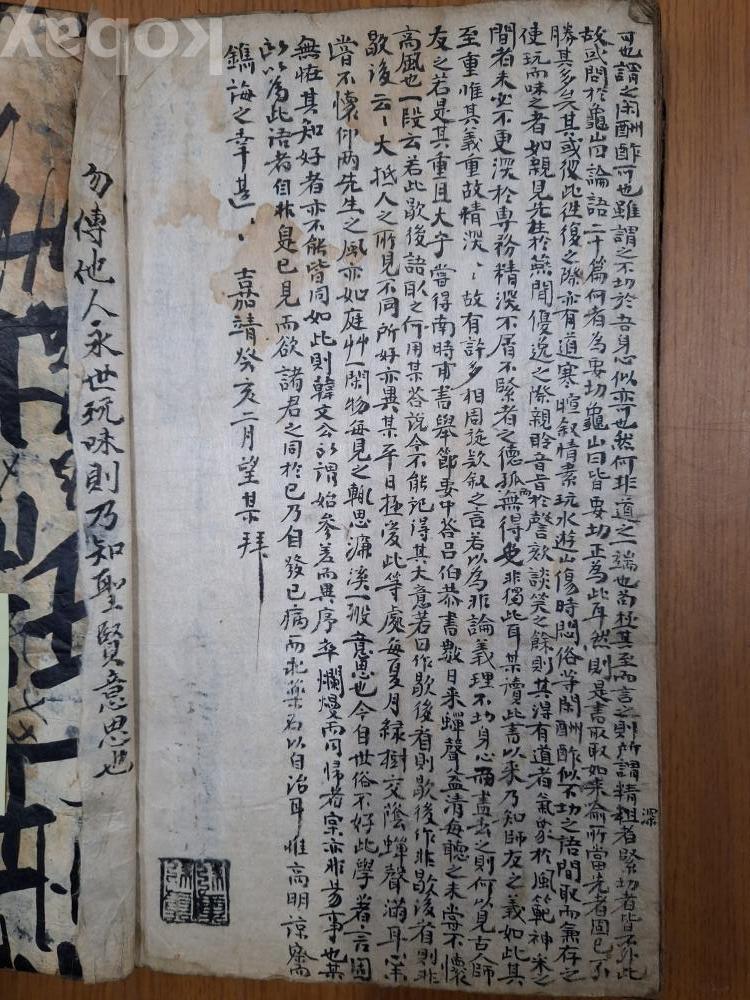 可也謂之閑酬酢可也雖謂之不切於吾身心似亦可也然何非道之一端也苟極其至而言之則所謂精粗者緊切者皆不外此
故或問於龜山曰論語二十篇何者為要切龜山曰皆要切正為此耳然則是書所取如来喩所當先者固已不
勝其多矣其或彼此往復之際亦有道寒暄叙情素玩水遊山傷時悶俗等閑酬酢似不切之語間取而兼存之
使玩而味之者如親見先生於燕閒優逸之際親聆音旨於謦欬談笑之餘則其得有道者氣象於風範神采之
間者未必不更深於專務精深不屑不緊者之德孤而無得也非獨此耳某讀此書以来乃知師友之義如此其
至重惟其義重故精深〻故有許多相周旋款叙之言若以為非論義理不切身心而盡去之則何以見古人師
友之若是其重且大乎嘗得南時甫書舉節要中答呂伯恭書數日来蟬聲益清每聽之未嘗不懷
高風也一段云若此歇後語取之何用某答說今不能記得其大意若曰作歇後看則歇後作非歇後看則非
歇後云〻大抵人之所見不同所好亦異某平日極愛此等處每夏月綠樹交陰蟬聲滿耳心未
嘗不懷仰兩先生之風亦如庭艸一閑物每見之輒思濂溪一般意思也今自世俗不好此學者言固
無怪其知好者亦不能皆同如此則韓文公所謂始參差而異序卒爛熳而同歸者亦非易事也某
所以為此語者自非是己見而欲諸君之同於己乃自發己病而求藥石以自治耳惟高明諒察而
鐫誨之幸甚〻嘉靖癸亥二月望某拜
勿傳他人永世玩味則乃知聖賢意思也
深
kobay